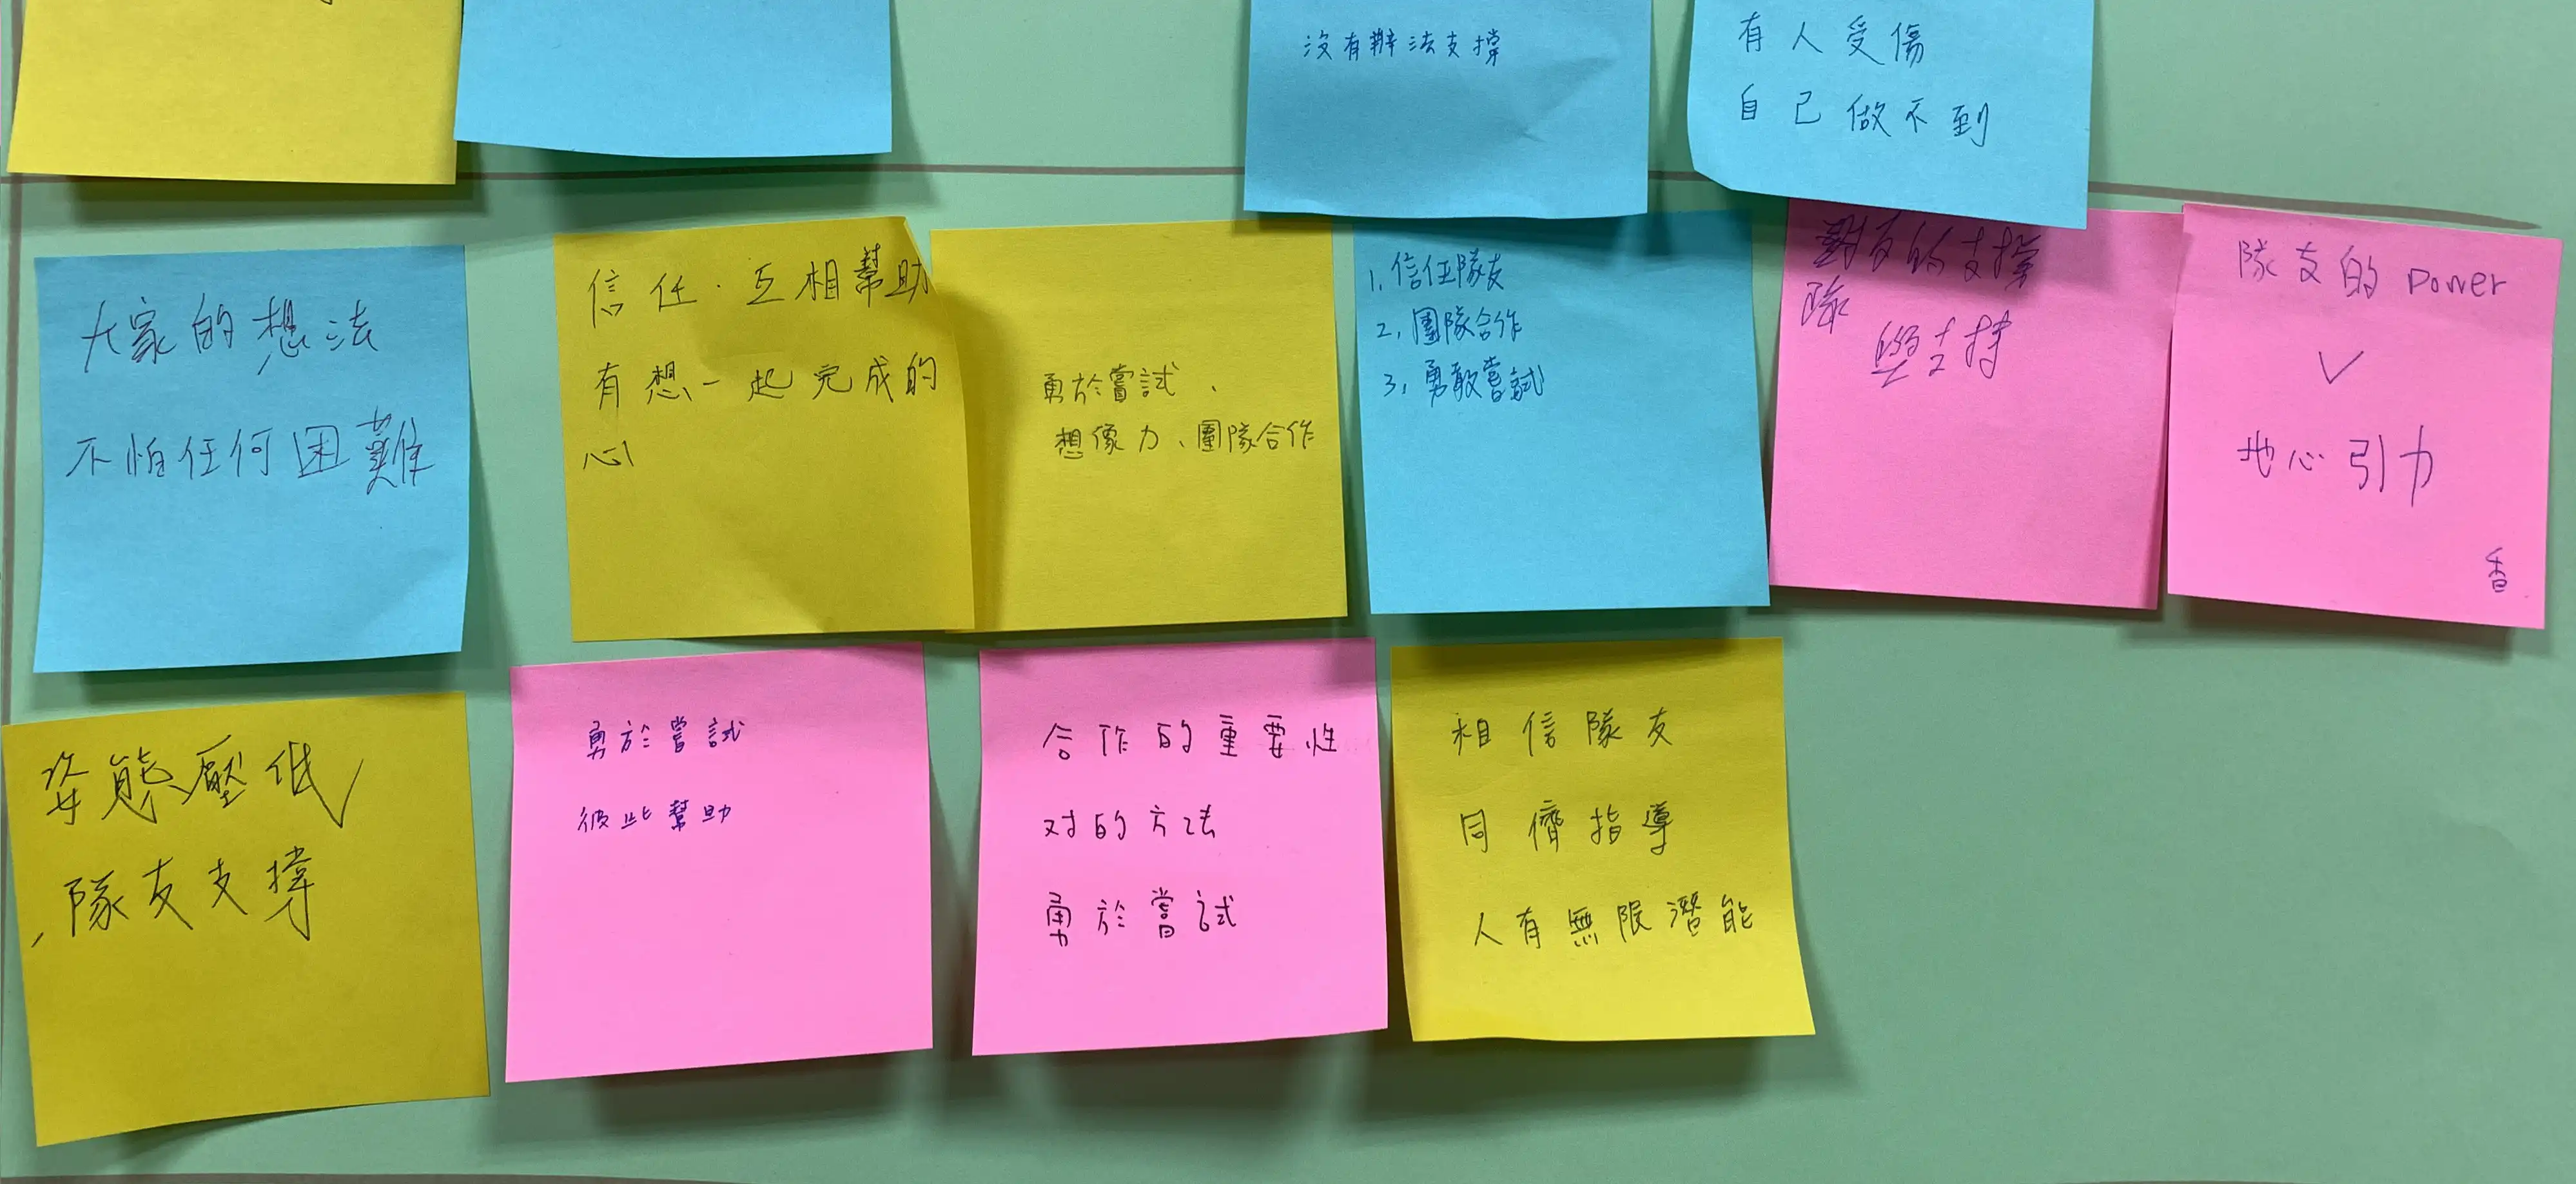 沒有辦法支撐
有人受傷
自己做不到
大家的想法
不怕任何困難
信任．互相幫助
有想一起完成的
心
勇於嘗試、
想像力、團隊合作
1. 信任隊友
2. 團隊合作
3. 勇敢嘗試
友的支撐
隊
與支持
隊友的 power
∨
地心引力
香
姿態壓低
，隊友支撐
勇於嘗試
彼此幫助
合作的重要性
对的方法
勇於嘗試
相信隊友
同儕指導
人有無限潛能